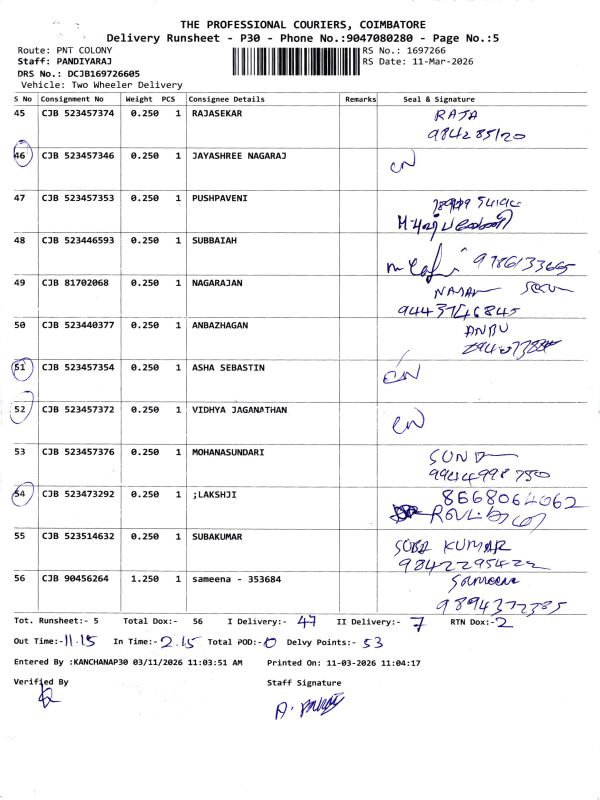 THE PROFESSIONAL COURIERS, COIMBATORE
Delivery Runsheet - P30 - Phone No.:9047080280 - Page No.:5
Route: PNT COLONY RS No.: 1697266
Staff: PANDIYARAJ RS Date: 11-Mar-2026
DRS No.: DCJB169726605
Vehicle: Two Wheeler Delivery
S No Consignment No Weight PCS Consignee Details Remarks Seal & Signature
45 CJB 523457374 0.250 1 RAJASEKAR RAJA
984285120
46 CJB 523457346 0.250 1 JAYASHREE NAGARAJ CN
47 CJB 523457353 0.250 1 PUSHPAVENI
48 CJB 523446593 0.250 1 SUBBAIAH 9786133665
49 CJB 81702068 0.250 1 NAGARAJAN
9443746845
50 CJB 523440377 0.250 1 ANBAZHAGAN ANBU
51 CJB 523457354 0.250 1 ASHA SEBASTIN CN
52 CJB 523457372 0.250 1 VIDHYA JAGANATHAN CN
53 CJB 523457376 0.250 1 MOHANASUNDARI SUND
9944998750
54 CJB 523473292 0.250 1 ;LAKSHJI 8668064062
55 CJB 523514632 0.250 1 SUBAKUMAR SUBA KUMAR
9842295422
56 CJB 90456264 1.250 1 sameena - 353684 Sameena
9894372385
Tot. Runsheet:- 5 Total Dox:- 56 I Delivery:- 47 II Delivery:- 7 RTN Dox:- 2
Out Time:- 11.15 In Time:- 2.15 Total POD:- 0 Delvy Points:- 53
Entered By :KANCHANAP30 03/11/2026 11:03:51 AM Printed On: 11-03-2026 11:04:17
Verified By Staff Signature